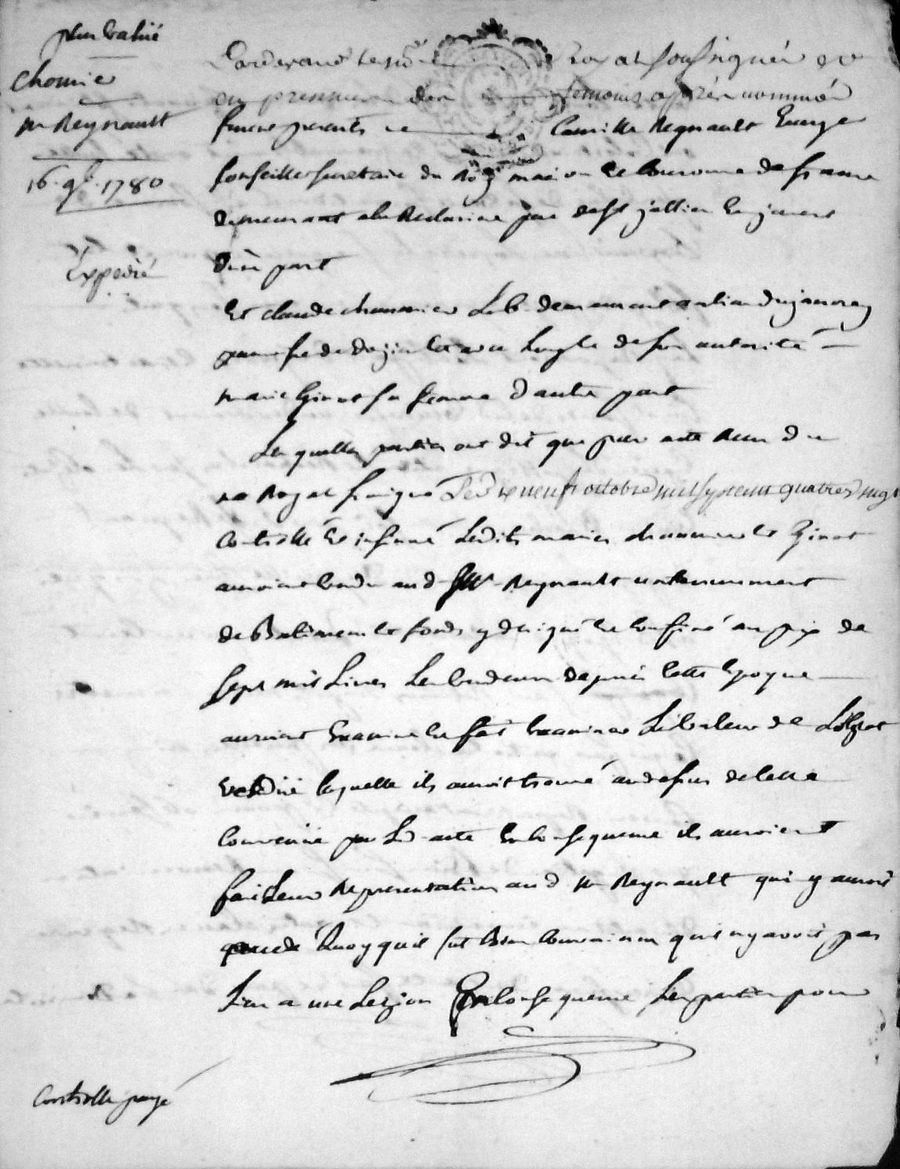 plus value
Chomier
Mr Reynault
16 9bre 1780
Expedié
Pardevant le no.re Royal soussigné et
en presence des temoins après nommés
furent présents Camille Regnault Ecuyer
Conseiller secretaire du Roy maison et Couronne de france
demeurant a la parr de st jullien En jarret
d'une part
Et claude chomier Lab. demeurant
de son autorité
marie Ginot sa femme d'autre part
Les quelles parties ont dit que par acte Reçu du
no.re Royal soussigné Le dix neuf octobre mil sept cent quatre vingt
Controllé et insinué Lesdits mariés chomier et Ginot
auroient vendu aud Sr Reynault un tenement
de Batiment et fonds y designé et Confiné au prix de
sept mil Livres Les vendeurs depuis cette Epoque
auroient Examiné et fait Examiner La valeur de L'objet
vendu laquelle ils auroient trouvé au dessus de celle
Convenue par Led acte En Consequence ils auroient
fait Leur Representation aud Mr Reynault qui y auroit
Quoyquil fut Bien Convaincu qu'il n'y avoit pas
Lieu a une Lezion En Consequence Les parties pour
Controlle payé